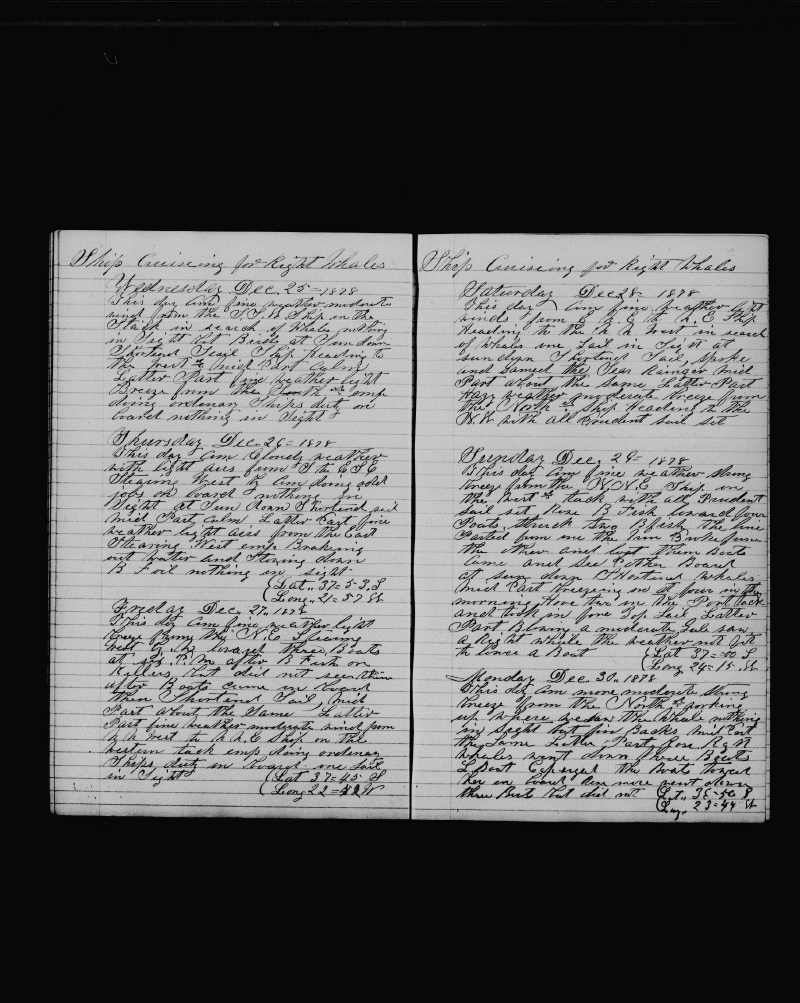 Ship Cruising for Right Whales
Wednesday Dec. 25 = 1878
This day Com fine weather moderate
wind from the S.S.W Ship on the
Tack in search of Whales nothing
in Sight but Boats at Sun down
Shortend Sail Ship Heading to
the west mid Part Calm
Latter Part fine weather light
Breeze from the South emp
doing ordenary Ships duty on
board nothing in Sight
Thursday Dec. 26 = 1878
This day Com Cloudy weather
with light airs from S to ESE
Stearing West by Com doing odd
jobs on board nothing in
Sight at Sun down Shortend sail
mid Part Calm Latter Part fine
weather light airs from the East
Stearing West emp Breaking
out water and Stowing down
B Foil nothing in sight
(Lat. 37=53. S
(Long. 21=57 W
Friday Dec. 27. 1878
This day Com fine weather light
breeze from the N.E Stearing
west by lowared three Boats
at six P.M after B Fish or
Killers but did not see them
after Boats came on board
then Shortend Sail Mid
Part about the Same Latter
Part fine weather moderate wind from
to N.N.E Ship on the
western tack emp doing ordenary
Ships duty on board one Sail
in Sight
(Lat 37=45 S
(Long 22=42 W
Ship Cruising for Right Whales
Saturday Dec 28 = 1878
This day Com fine weather light
winds from to N.E Ship
Heading to the West in search
of Whales one Sail in Sight at
sun down Shortend Sail, Spoke
and gamed the Clear Rainger mid
Part about the Same Latter Part
Hazy weather moderate breeze from
the North Ship Heading to the
with all Prudent sail set
Sunday Dec. 29 = 1878
This day Com fine weather strong
breeze from the N.N.E Ship on
the west tack with all Prudent
Sail set Rose B Fish lowared four
Boats Struck two B fish the line
Parted from one the Iron Broke from
the other and lost them Boats
Came and See Cother Board
at sun down Shortend whales
mid Part breezing on at four in the
morning Hove two in the Port tack
and took in fore Top Sail Latter
Part Blowing a moderate Gale saw
a Right Whale the weather not fit
to lower a Boat
(Lat 37=00 S
(Long 24=15 W
Monday Dec. 30. 1878
This day Com more moderate strong
breeze from the North working
up where we saw the Whale nothing
in sight but fin Backs mid Part
the Same Latter Part
whales went down three Boats
L Boat Capsized the Boats towed
her on board
three Boats But did not
(Lat. 36=50 S
(Long. 23=44 W